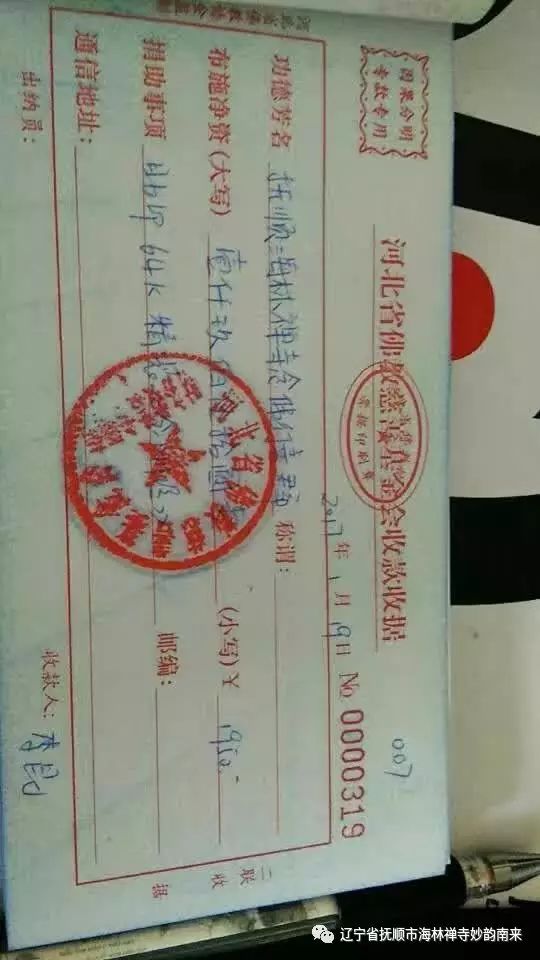 因果分明
专款专用
河北省佛教慈善基金会收款收据
007
2017年1月19日 No 0000319
功德芳名 抚顺海林禅寺念佛行善群 称谓:
布施净资(大写) 壹仟玖佰 (小写)¥
捐助事项 助印64K精装 邮编:
通信地址:
出纳员: 收款人:
二联收据
辽宁省抚顺市海林禅寺妙韵南来